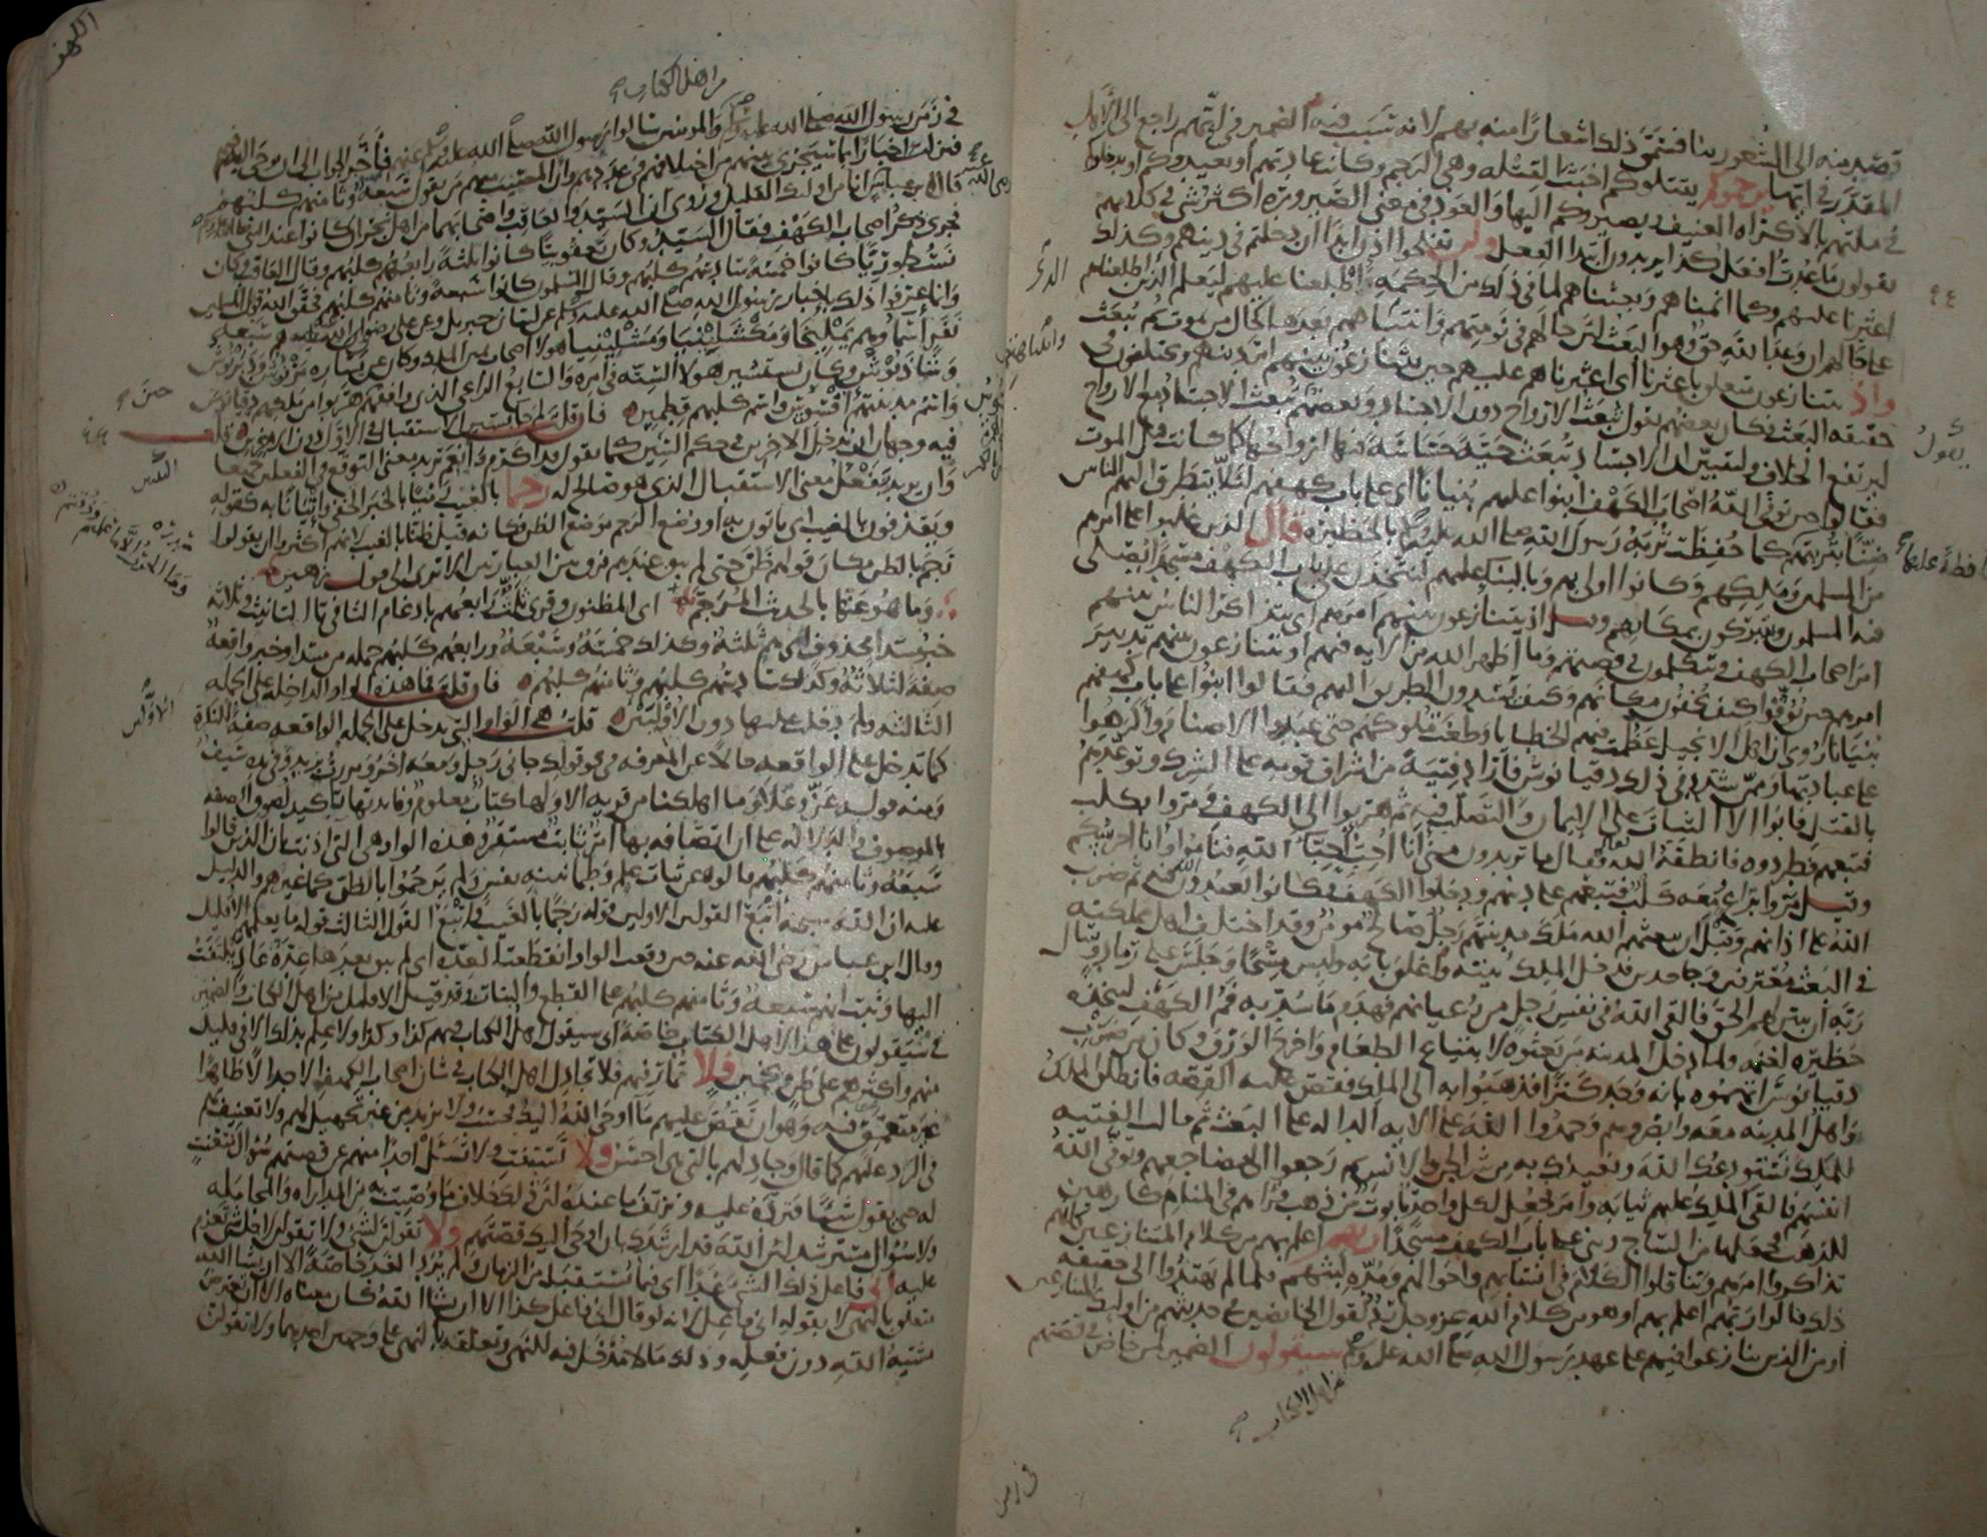 قصد منه الى الشعور بنا فسمى ذلك اشعارا منه بهم لانه سبب فيه الضمير في انهم راجع الى الاهل
المقدر في ايها يرجموكم يقتلوكم اخبث القتلة وهي الرجم وكانت عادتهم او يعيدوكم او يدخلوكم
في ملتهم بالاكراه العنيف ويصيروكم اليها والعود في معنى الصيرورة اكثر شيء في كلامهم
يقولون ما عدت افعل كذا يريدون ابتداء الفعل ولن تفلحوا اذا ابدا ان دخلتم في دينهم وكذلك
اعثرنا عليهم وكما انمناهم وبعثناهم لما في ذلك من الحكمة اطلعنا عليهم ليعلم الذين اطلعناهم
على حالهم ان وعد الله حق وهو البعث لان حالهم في نومتهم وانتباههم بعدها كحال من يموت ثم يبعث
واذ يتنازعون متعلق باعثرنا اي اعثرناهم عليهم حين يتنازعون بينهم امر دينهم ويختلفون في
حقيقة البعث فكان بعضهم يقول تبعث الارواح دون الاجساد وبعضهم تبعث الاجساد مع الارواح
ليرتفع الخلاف وليتبين ان الاجساد تبعث حية حساسة فيها ارواحها كما كانت قبل الموت
فقالوا حين توفى الله اصحاب الكهف ابنوا عليهم بنيانا اي على باب كهفهم لئلا يتطرق اليهم الناس
ضنا بتربتهم كما حفظت تربة رسول الله صلى الله عليه بالحظيرة قال الذين غلبوا على امرهم
من المسلمين وملكهم وكانوا اولى بهم وبالبناء عليهم لنتخذن على باب الكهف مسجدا يصلي
فيه المسلمون ويتبركون بمكانهم وقيل اذ يتنازعون بينهم امرهم اي يتذاكر الناس بينهم
امر اصحاب الكهف ويتكلمون في قصتهم وما اظهر الله من الاية فيهم او يتنازعون بينهم تدبير
امرهم حين توفوا كيف يخفون مكانهم وكيف يسدون الطريق اليهم فقالوا ابنوا على باب كهفهم
بنيانا روي ان اهل الانجيل عظمت فيهم الخطايا وطغت ملوكهم حتى عبدوا الاصنام واكرهوا
على عبادتها وممن شدد في ذلك دقيانوس فاراد فتية من اشراف قومه على الشرك وتوعدهم
بالقتل فابوا الا الثبات على الايمان والتصلب فيه ثم هربوا الى الكهف ومروا بكلب
فتبعهم فطردوه فانطقه الله فقال ما تريدون مني انا احب احباء الله فناموا وانا احرسكم
وقيل مروا براع معه كلب فتبعهم على دينهم ودخلوا الكهف فكانوا يعبدون الله فيه ثم ضرب
الله على اذانهم وقبل ان يبعثهم الله ملك مدينتهم رجل صالح مؤمن وقد اختلف اهل مملكته
في البعث معترفين وجاحدين فدخل الملك بيته واغلق بابه ولبس مسحا وجلس على رماد وسال
ربه ان يبين لهم الحق فالقى الله في نفس رجل من رعيانهم فهدم ما سد به فم الكهف ليتخذه
حظيرة لغنمه ولما دخل المدينة من بعثوه لابتياع الطعام واخرج الورق وكان من ضرب
دقيانوس اتهموه بانه وجد كنزا فذهبوا به الى الملك فقص عليه القصة فانطلق الملك
واهل المدينة معه وابصروهم وحمدوا الله على الاية الدالة على البعث ثم قالت الفتية
للملك نستودعك الله ونعيذك به من شر الجن والانس ثم رجعوا الى مضاجعهم وتوفى الله
انفسهم فالقى الملك عليهم ثيابه وامر فجعل لكل واحد تابوت من ذهب فراهم في المنام كارهين
للذهب فجعلها من الساج وبنى على باب الكهف مسجدا ربهم اعلم بهم من كلام المتنازعين كانهم
تذاكروا امرهم وتناقلوا الكلام في انسابهم واحوالهم ومدة لبثهم فلما لم يهتدوا الى حقيقة
ذلك قالوا ربهم اعلم بهم او هو من كلام الله عز وجل رد لقول الخائضين في حديثهم من اولئك المتنازعين
او من الذين تنازعوا فيهم على عهد رسول الله صلى الله عليه وسلم سيقولون الضمير لمن خاض في قصتهم
من اهل الكتاب
في زمن
الكهف
من اهل الكتاب
في زمن رسول الله صلى الله عليه وسلم والمؤمنين سالوا رسول الله صلى الله عليه وسلم عنهم فاخر الجواب الى ان يوحى اليه فيهم
فنزلت اخبارا بما سيجري بينهم من اختلافهم في عددهم وان المصيب منهم من يقول سبعة وثامنهم كلبهم
قال ابن عباس انا من اولئك القليل وروي ان السيد والعاقب واصحابهما من اهل نجران كانوا عند النبي
فجرى ذكر اصحاب الكهف فقال السيد وكان يعقوبيا كانوا ثلثة رابعهم كلبهم وقال العاقب وكان
نسطوريا كانوا خمسة سادسهم كلبهم وقال المسلمون كانوا سبعة وثامنهم كلبهم فحقق الله قول المسلمين
وانما عرفوا ذلك باخبار رسول الله صلى الله عليه وسلم عن لسان جبريل وعن علي رضوان الله عليه هم سبعة
نفر اسماؤهم يمليخا ومكشليينيا ومشلينيا هؤلاء اصحاب يمين الملك وكان عن يساره مرنوش ودبرنوش
وشاذنوش وكان يستشير هؤلاء الستة في امره والسابع الراعي الذي وافقهم حين هربوا من ملكهم دقيانوس
واسم مدينتهم افسوس واسم كلبهم قطمير فان قلت لم جاء سين الاستقبال في الاول دون الاخرين قلت
فيه وجهان ان تدخل الاخرين في حكم السين كما تقول قد اكرم وانعم تريد معنى التوقع في الفعلين جميعا
وان يريد بيفعل معنى الاستقبال الذي هو صالح له رجما بالغيب رميا بالخبر الخفي واتيانا به كقوله
ويقذفون بالغيب اي ياتون به او وضع الرجم موضع الظن فكانه قيل ظنا بالغيب لانهم اكثروا ان يقولوا
رجم بالظن مكان قولهم ظن حتى لم يبق عندهم فرق بين العبارتين الا ترى الى قول زهير
وما هو عنها بالحديث المرجم اي المظنون وقرئ ثلث رابعهم بادغام الثاء في تاء التانيث وثلاثة
خبر مبتدا محذوف اي هم ثلثة وكذلك خمسة وسبعة ورابعهم كلبهم جملة من مبتدا وخبر واقعة
صفة لثلاثة وكذلك سادسهم كلبهم وثامنهم كلبهم فان قلت فما هذه الواو الداخلة على الجملة
الثالثة ولم دخلت عليها دون الاولتين قلت هي الواو التي تدخل على الجملة الواقعة صفة للنكرة
كما تدخل على الواقعة حالا عن المعرفة في نحو قولك جاءني رجل ومعه اخر ومررت بزيد وفي يده سيف
ومنه قوله عز وعلا وما اهلكنا من قرية الا ولها كتاب معلوم وفائدتها تاكيد لصوق الصفة
بالموصوف والدلالة على ان اتصافه بها امر ثابت مستقر وهذه الواو هي التي اذنت بان الذين قالوا
سبعة وثامنهم كلبهم قالوه عن ثبات علم وطمانينة نفس ولم يرجموا بالظن كما غيرهم والدليل
عليه ان الله سبحنه اتبع القولين الاولين قوله رجما بالغيب واتبع القول الثالث قوله ما يعلمهم الا قليل
وقال ابن عباس رضي الله عنه حين وقعت الواو انقطعت العدة اي لم يبق بعدها عدة عاد يلتفت
اليها وثبت انهم سبعة وثامنهم كلبهم على القطع والبتات وقد قيل الا قليل من اهل الكتاب والضمير
في سيقولون على هذا لاهل الكتاب خاصة اي سيقول اهل الكتاب فيهم كذا وكذا ولا علم بذلك الا في قليل
منهم واكثرهم على ظن وتخمين فلا تمار فيهم فلا تجادل اهل الكتاب في شان اصحاب الكهف الا جدالا ظاهرا
غير متعمق فيه وهو ان تقص عليهم ما اوحى الله اليك فحسب ولا تزيد من غير تجهيل لهم ولا تعنيف بهم
في الرد عليهم كما قال وجادلهم بالتي هي احسن ولا تستفت ولا تسئل احدا منهم عن قصتهم سؤال متعنت
له حتى يقول شيئا فترده عليه وتزيف ما عنده لان ذلك خلاف ما وصيت به من المداراة والمجاملة
ولا سؤال مسترشد لان الله قد ارشدك بان اوحى اليك قصتهم ولا تقولن لشيء ولا تقولن لاجل شيء تعزم
عليه اني فاعل ذلك الشيء غدا اي فيما يستقبل من الزمان ولم يرد الغد خاصة الا ان يشاء الله
متعلق بالنهي لا بقوله اني فاعل لانه لو قال اني فاعل كذا الا ان يشاء الله كان معناه الا ان تعترض
مشية الله دون فعله وذلك مما لا مدخل فيه للنهي وتعلقه بالنهي على وجهين احدهما ولا تقولن